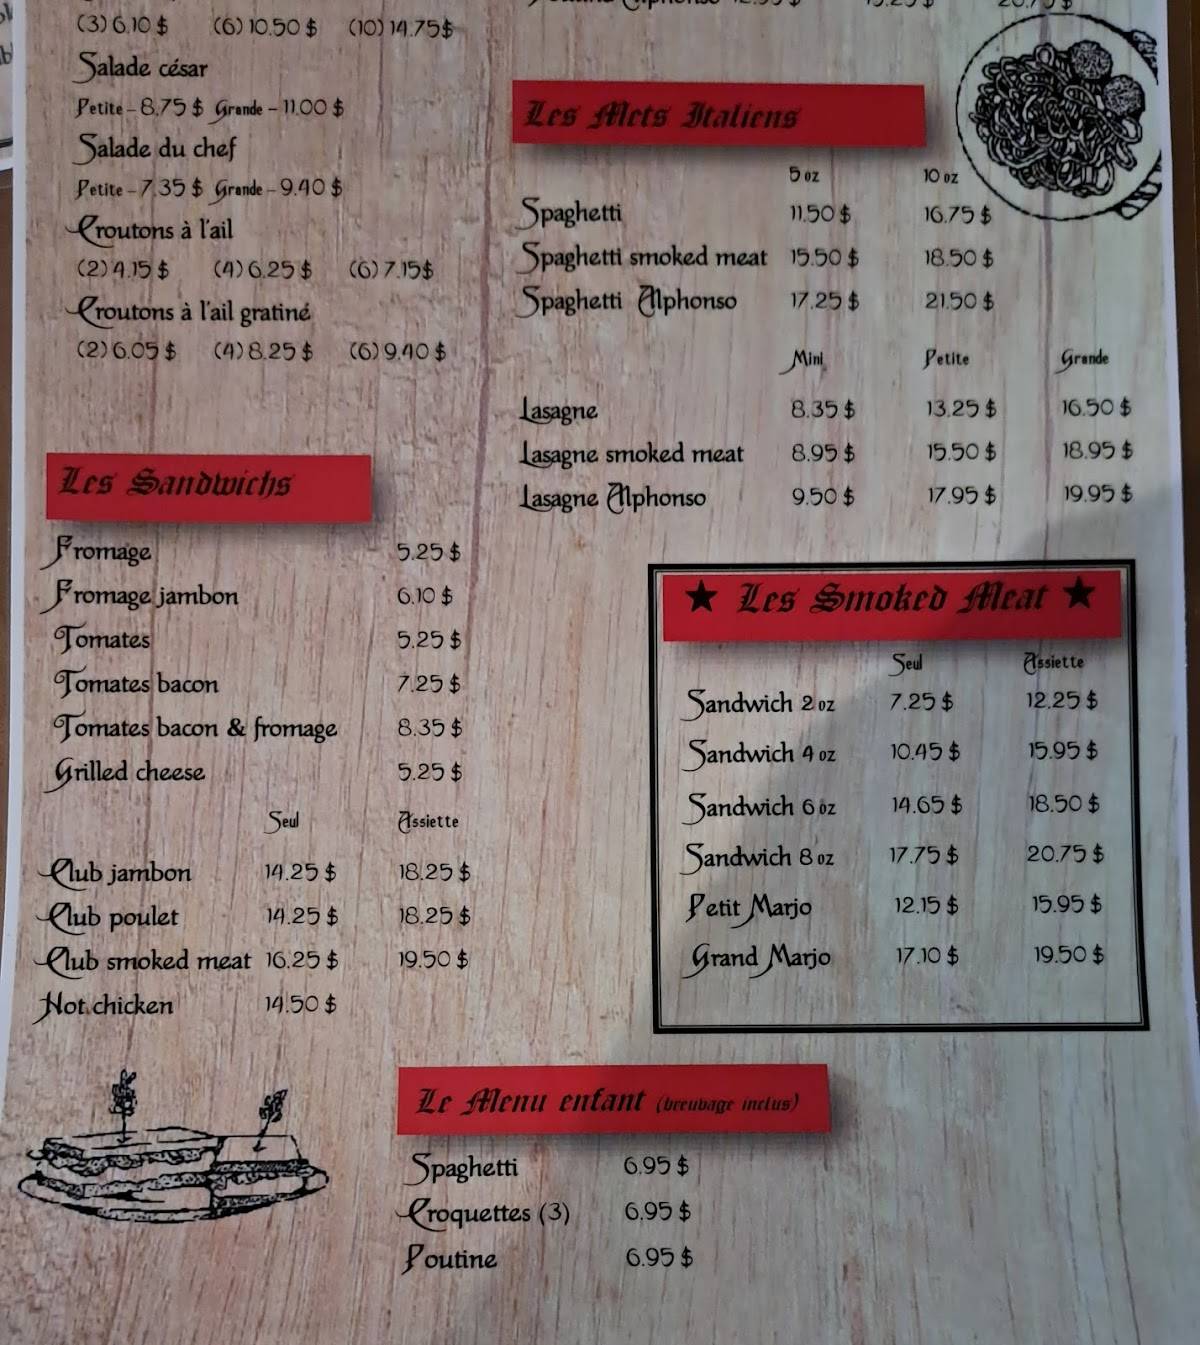 (3) 6.10 $ (6) 10.50 $ (10) 14.75$
Salade césar
Petite - 8.75 $ Grande - 11.00 $
Salade du chef
Petite - 7.35 $ Grande - 9.40 $
Croutons à l'ail
(2) 4.15 $ (4) 6.25 $ (6) 7.15$
Croutons à l'ail gratiné
(2) 6.05 $ (4) 8.25 $ (6) 9.40 $
Les Sandwichs
Fromage 5.25 $
Fromage jambon 6.10 $
Tomates 5.25 $
Tomates bacon 7.25 $
Tomates bacon & fromage 8.35 $
Grilled cheese 5.25 $
Seul Assiette
Club jambon 14.25 $ 18.25 $
Club poulet 14.25 $ 18.25 $
Club smoked meat 16.25 $ 19.50 $
Hot chicken 14.50 $
Les Mets Italiens
5 oz 10 oz
Spaghetti 11.50 $ 16.75 $
Spaghetti smoked meat 15.50 $ 18.50 $
Spaghetti Alphonso 17.25 $ 21.50 $
Mini Petite Grande
Lasagne 8.35 $ 13.25 $ 16.50 $
Lasagne smoked meat 8.95 $ 15.50 $ 18.95 $
Lasagne Alphonso 9.50 $ 17.95 $ 19.95 $
★ Les Smoked Meat ★
Seul Assiette
Sandwich 2 oz 7.25 $ 12.25 $
Sandwich 4 oz 10.45 $ 15.95 $
Sandwich 6 oz 14.65 $ 18.50 $
Sandwich 8 oz 17.75 $ 20.75 $
Petit Marjo 12.15 $ 15.95 $
Grand Marjo 17.10 $ 19.50 $
Le Menu enfant (breuvage inclus)
Spaghetti 6.95 $
Croquettes (3) 6.95 $
Poutine 6.95 $